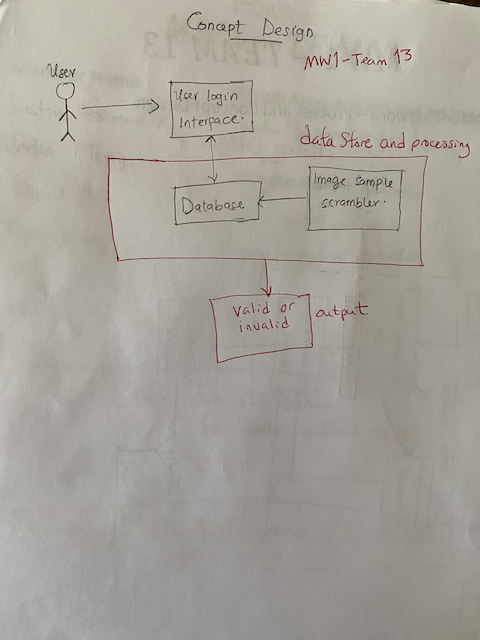 Concept Design
MW1-Team 13
User
User login
Interface.
data Store and processing
Image sample
scrambler.
Database
Valid or
invalid
output